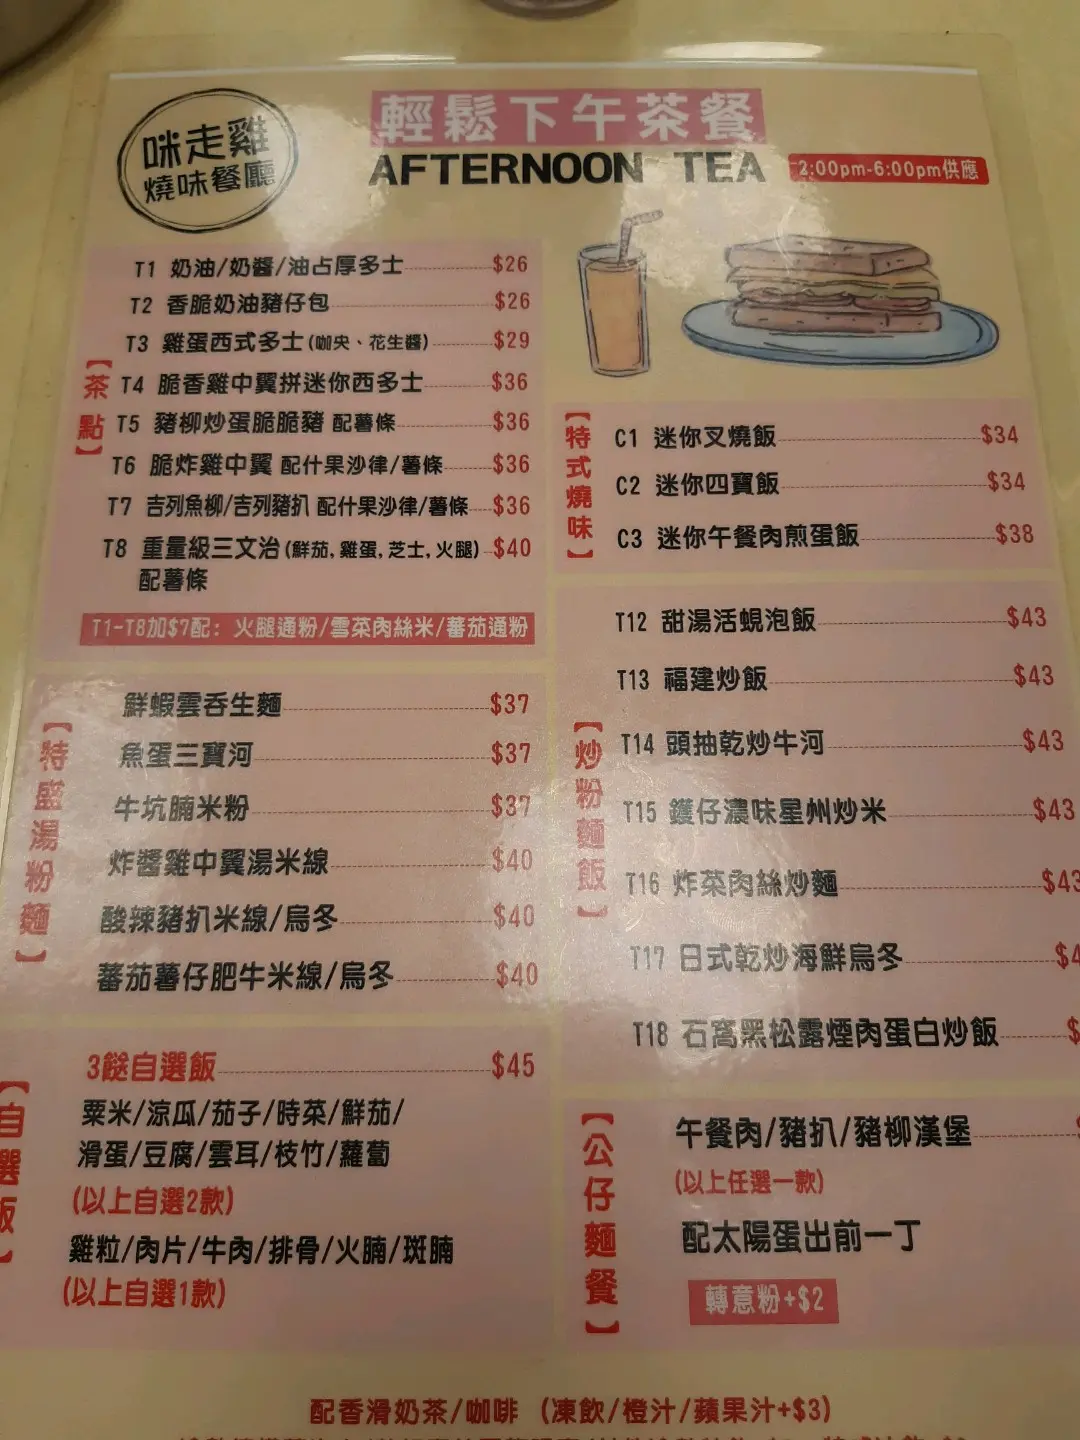 咪走雞
燒味餐廳
輕鬆下午茶餐
AFTERNOON TEA
2:00pm-6:00pm供應
【茶點】
T1 奶油/奶醬/油占厚多士 $26
T2 香脆奶油豬仔包 $26
T3 雞蛋西式多士(咖央、花生醬) $29
T4 脆香雞中翼拼迷你西多士 $36
T5 豬柳炒蛋脆脆豬 配薯條 $36
T6 脆炸雞中翼 配什果沙律/薯條 $36
T7 吉列魚柳/吉列豬扒 配什果沙律/薯條 $36
T8 重量級三文治(鮮茄,雞蛋,芝士,火腿) $40
配薯條
T1-T8加$7配: 火腿通粉/雪菜肉絲米/蕃茄通粉
【特式燒味】
C1 迷你叉燒飯 $34
C2 迷你四寶飯 $34
C3 迷你午餐肉煎蛋飯 $38
【特盛湯粉麵】
鮮蝦雲吞生麵 $37
魚蛋三寶河 $37
牛坑腩米粉 $37
炸醬雞中翼湯米線 $40
酸辣豬扒米線/烏冬 $40
蕃茄薯仔肥牛米線/烏冬 $40
【炒粉麵飯】
T12 甜湯活蜆泡飯 $43
T13 福建炒飯 $43
T14 頭抽乾炒牛河 $43
T15 鑊仔濃味星州炒米 $43
T16 炸菜肉絲炒麵 $43
T17 日式乾炒海鮮烏冬 $4
T18 石窩黑松露煙肉蛋白炒飯 $
【自選飯】
3餸自選飯 $45
粟米/涼瓜/茄子/時菜/鮮茄/
滑蛋/豆腐/雲耳/枝竹/蘿蔔
(以上自選2款)
雞粒/肉片/牛肉/排骨/火腩/斑腩
(以上自選1款)
【公仔麵餐】
午餐肉/豬扒/豬柳漢堡
(以上任選一款)
配太陽蛋出前一丁
轉意粉+$2
配香滑奶茶/咖啡 (凍飲/橙汁/蘋果汁+$3)